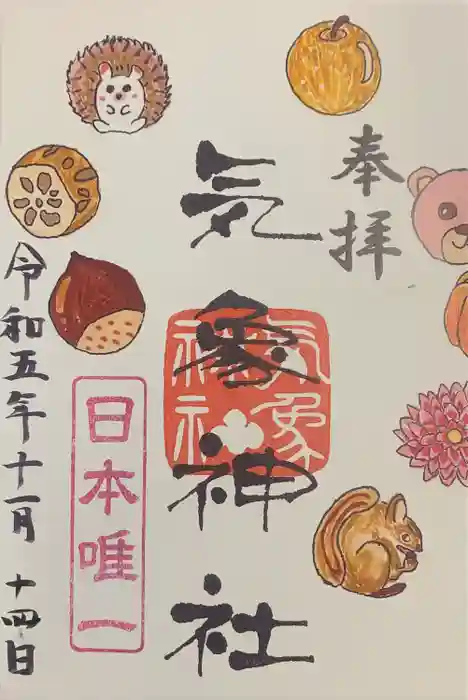 奉拝
気象神社
気象神社
日本唯一
令和五年十一月 十四日